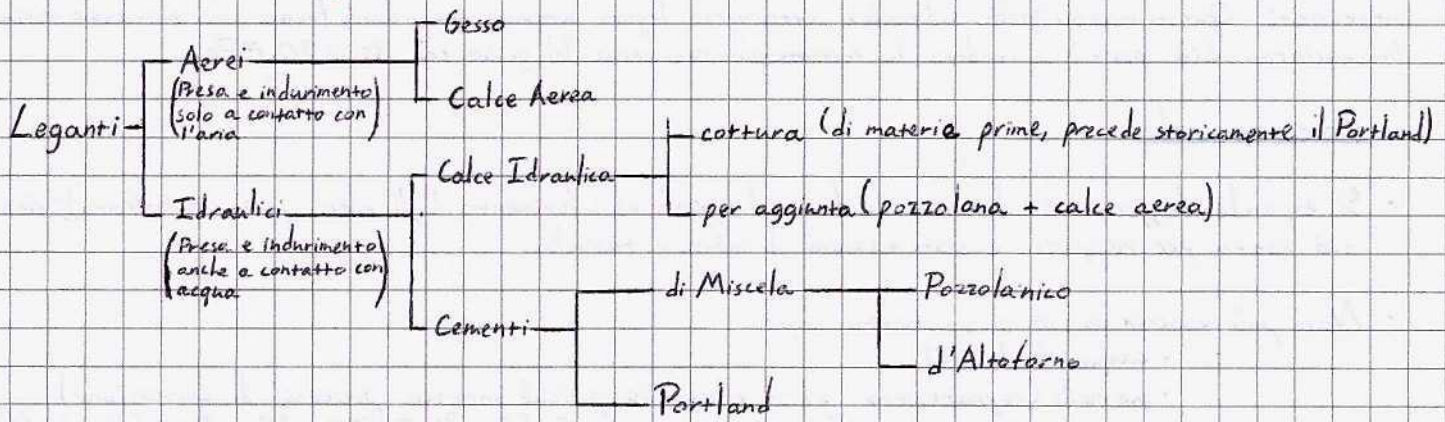 Leganti
Aerei
(Presa e indurimento
solo a contatto con
l'aria)
Gesso
Calce Aerea
Idraulici
(Presa e indurimento
anche a contatto con
acqua)
Calce Idraulica
cottura (di materie prime, precede storicamente il Portland)
per aggiunta (pozzolana + calce aerea)
Cementi
di Miscela
Pozzolanico
d'Altoforno
Portland